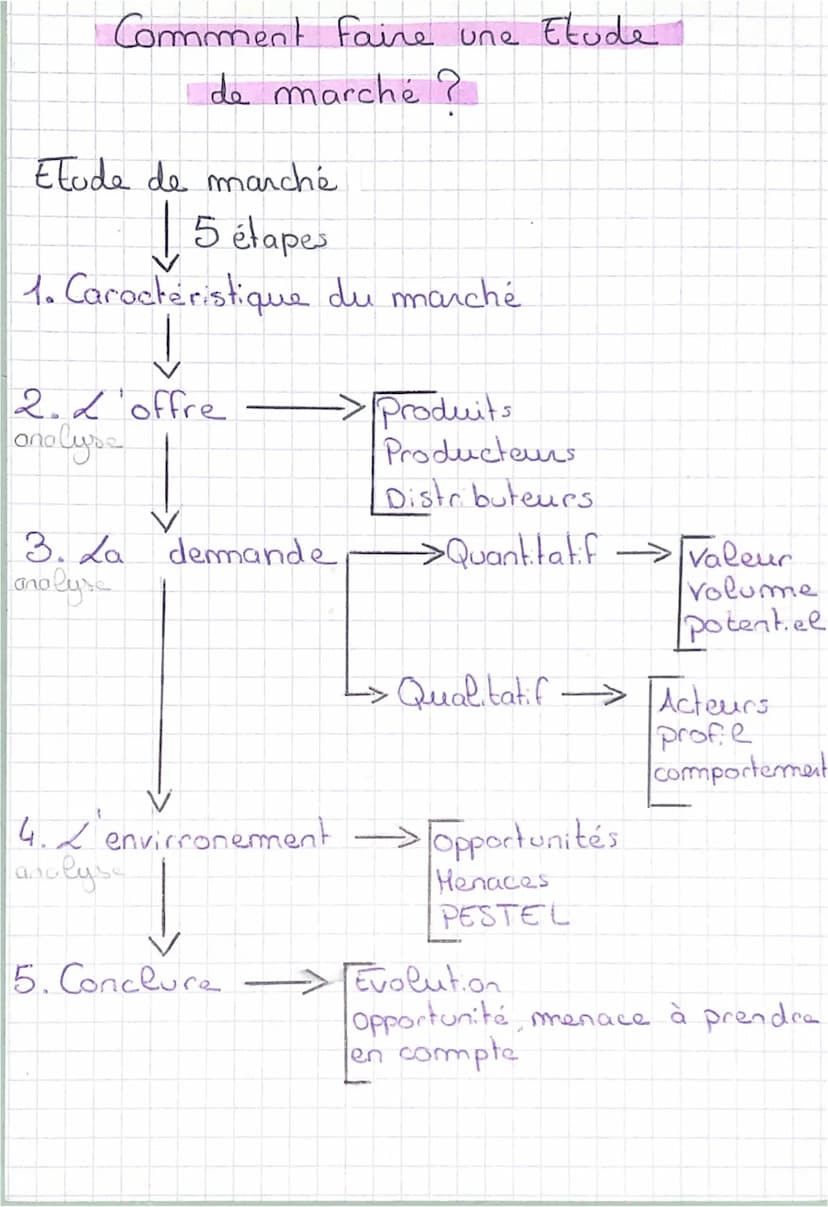 Commment faire une Etude
de marché ?
Etude de marché
5 étapes
1. Caractéristique du marché
2. L'offre
analyse
Produits
Producteurs
Distributeurs
3. La demande
analyse
Quantitatif
Valeur
volume
potentiel
Qualitatif
Acteurs
profil
comportement
4. L'envirronement
analyse
Opportunités
Menaces
PESTEL
5. Conclure
Evolution
opportunité, menace à prendre
en compte